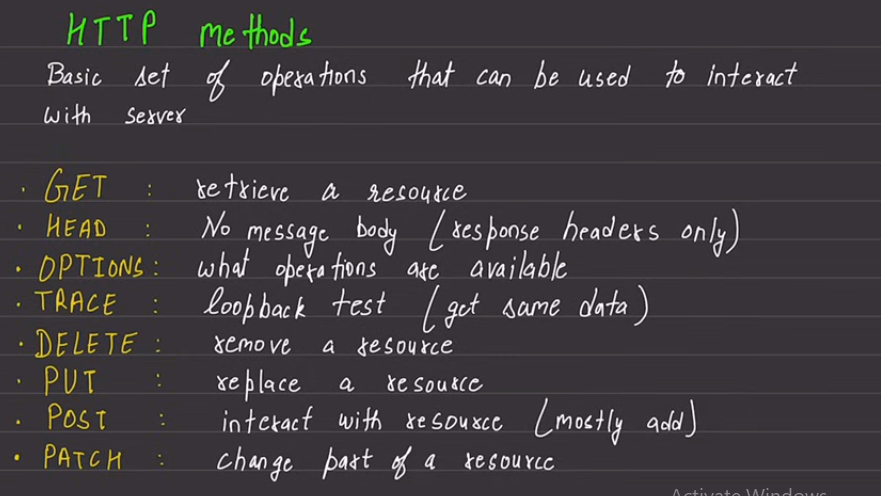 HTTP methods
Basic set of operations that can be used to interact
with server
· GET : retrieve a resource
· HEAD : No message body (response headers only)
· OPTIONS : what operations are available
· TRACE : loopback test (get same data)
· DELETE : remove a resource
· PUT : replace a resource
· POST : interact with resource (mostly add)
· PATCH : change part of a resource
Activate Windows